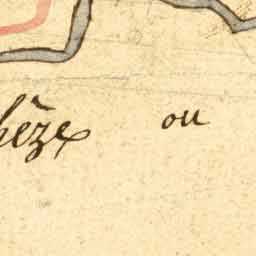 hèze ou